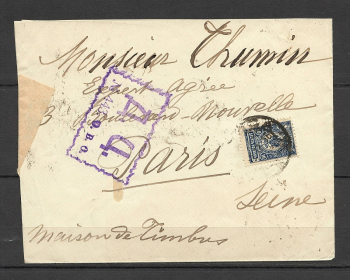 Monsieur Thumin
Expert agrée
3 Boulevard Nouvelle
Paris
Seine
Maison de Timbres